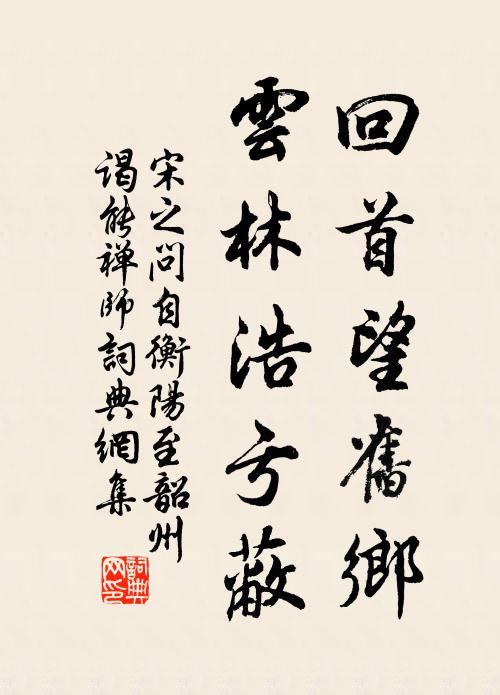 回首望舊鄉
雲林浩亏蔽
宋之問自衡陽至韶州
謁能禅師詞典網集
詞典
网印